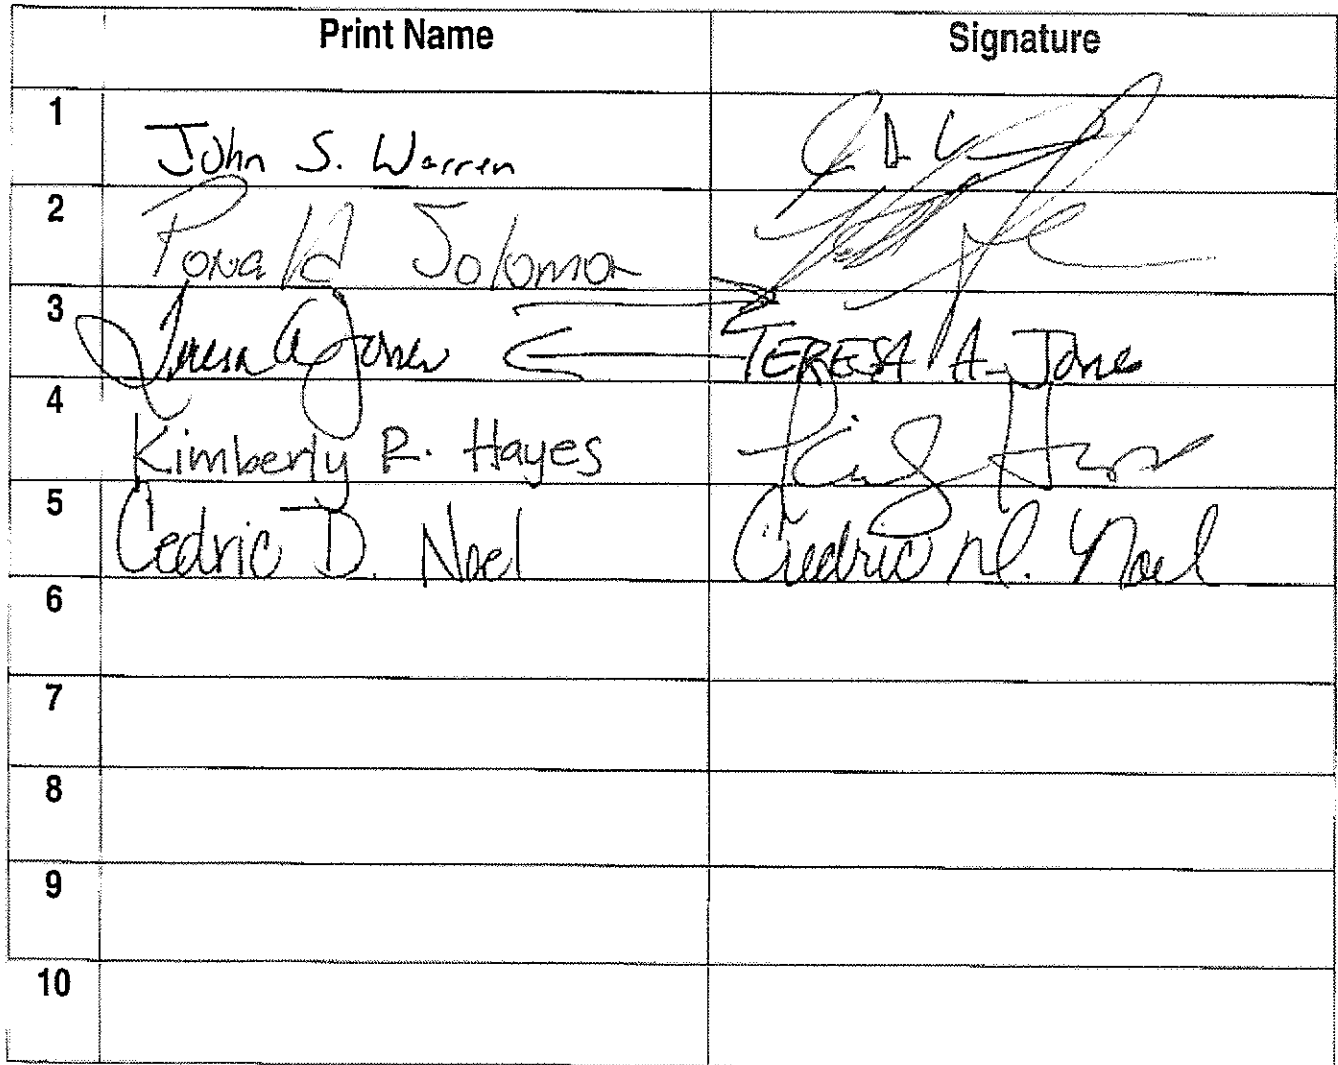 Print Name Signature
1 John S. Warren
2 Ronald Solomon
3 Teresa A Jones TERESA A. Jones
4 Kimberly R. Hayes
5 Cedric D. Noel Cedric D. Noel
6
7
8
9
10